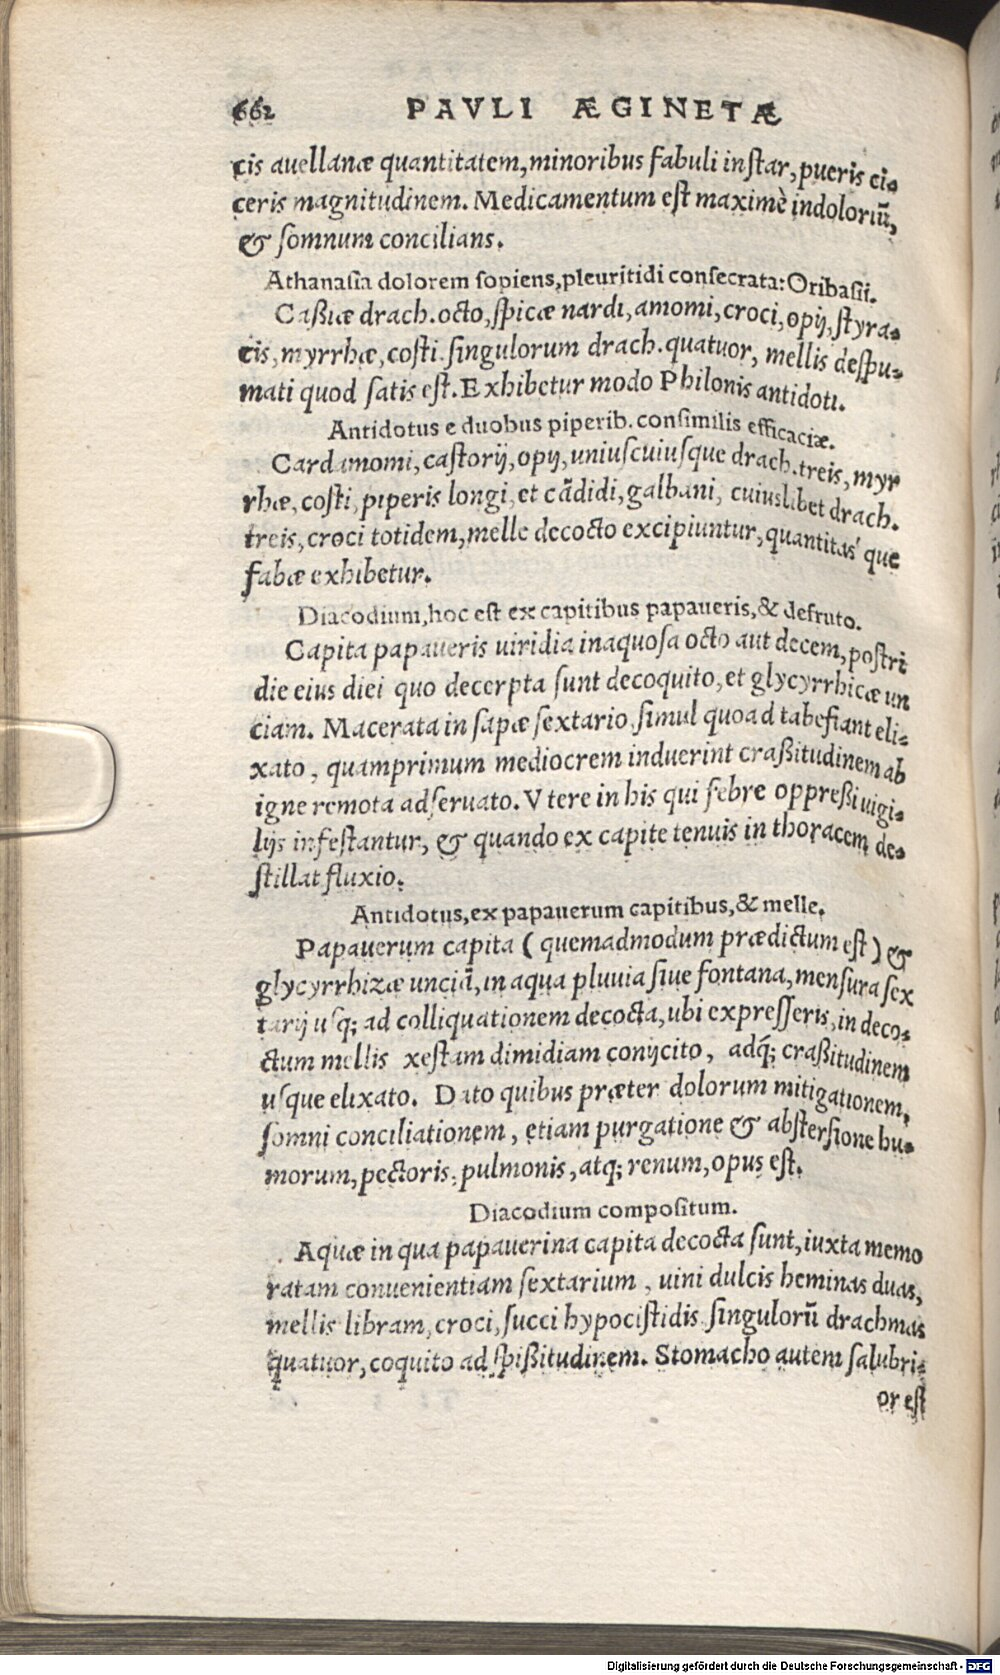 662 PAVLI ÆGINETÆ
cis auellanæ quantitatem, minoribus fabuli instar, pueris ci-
ceris magnitudinem. Medicamentum est maximè indoloriũ,
& somnum concilians.
Athanasia dolorem sopiens, pleuritidi consecrata: Oribasii.
Caßiæ drach. octo, spicæ nardi, amomi, croci, opij, styra-
cis, myrrhæ, costi singulorum drach. quatuor, mellis despu-
mati quod satis est. Exhibetur modo Philonis antidoti.
Antidotus e duobus piperib. consimilis efficaciæ.
Cardamomi, castorij, opij, uniuscuiusque drach. treis, myr
rhæ, costi, piperis longi, et cãdidi, galbani, cuiuslibet drach.
treis, croci totidem, melle decocto excipiuntur, quantitas' que
fabæ exhibetur.
Diacodium, hoc est ex capitibus papaueris, & defruto.
Capita papaueris uiridia inaquosa octo aut decem, postri
die eius diei quo decerpta sunt decoquito, et glycyrrhicæ un
ciam. Macerata in sapæ sextario simul quoad tabefiant eli-
xato, quamprimum mediocrem induerint craßitudinem ab
igne remota adseruato. Vtere in his qui febre oppreßi uigi-
lijs infestantur, & quando ex capite tenuis in thoracem de-
stillat fluxio.
Antidotus, ex papauerum capitibus, & melle.
Papauerum capita (quemadmodum prædictum est) &
glycyrrhizæ unciã, in aqua pluuia siue fontana, mensura sex
tarij usq; ad colliquationem decocta, ubi expresseris, in deco-
ctum mellis xestam dimidiam conijcito, adq́; craßitudinem
usque elixato. Dato quibus præter dolorum mitigationem,
somni conciliationem, etiam purgatione & abstersione hu-
morum, pectoris, pulmonis, atq; renum, opus est.
Diacodium compositum.
Aquæ in qua papauerina capita decocta sunt, iuxta memo
ratam conuenientiam sextarium, uini dulcis heminas duas,
mellis libram, croci, succi hypocistidis singulorũ drachmas
quatuor, coquito ad spißitudinem. Stomacho autem salubri-
or est
Digitalisierung gefördert durch die Deutsche Forschungsgemeinschaft - DFG